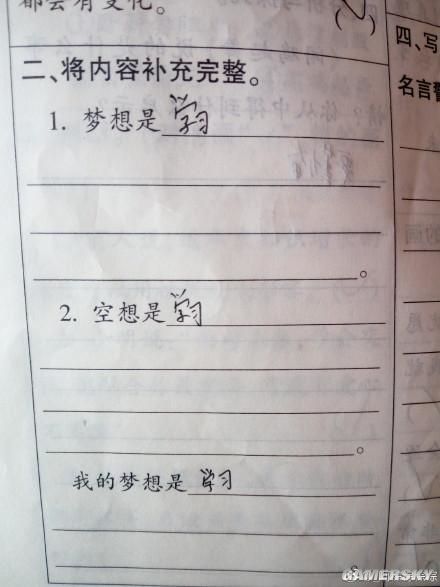 都会有变化。
( )
二、将内容补充完整。
1. 梦想是学习
。
2. 空想是学习
。
我的梦想是学习
四、写
名言警
GAMERSKY